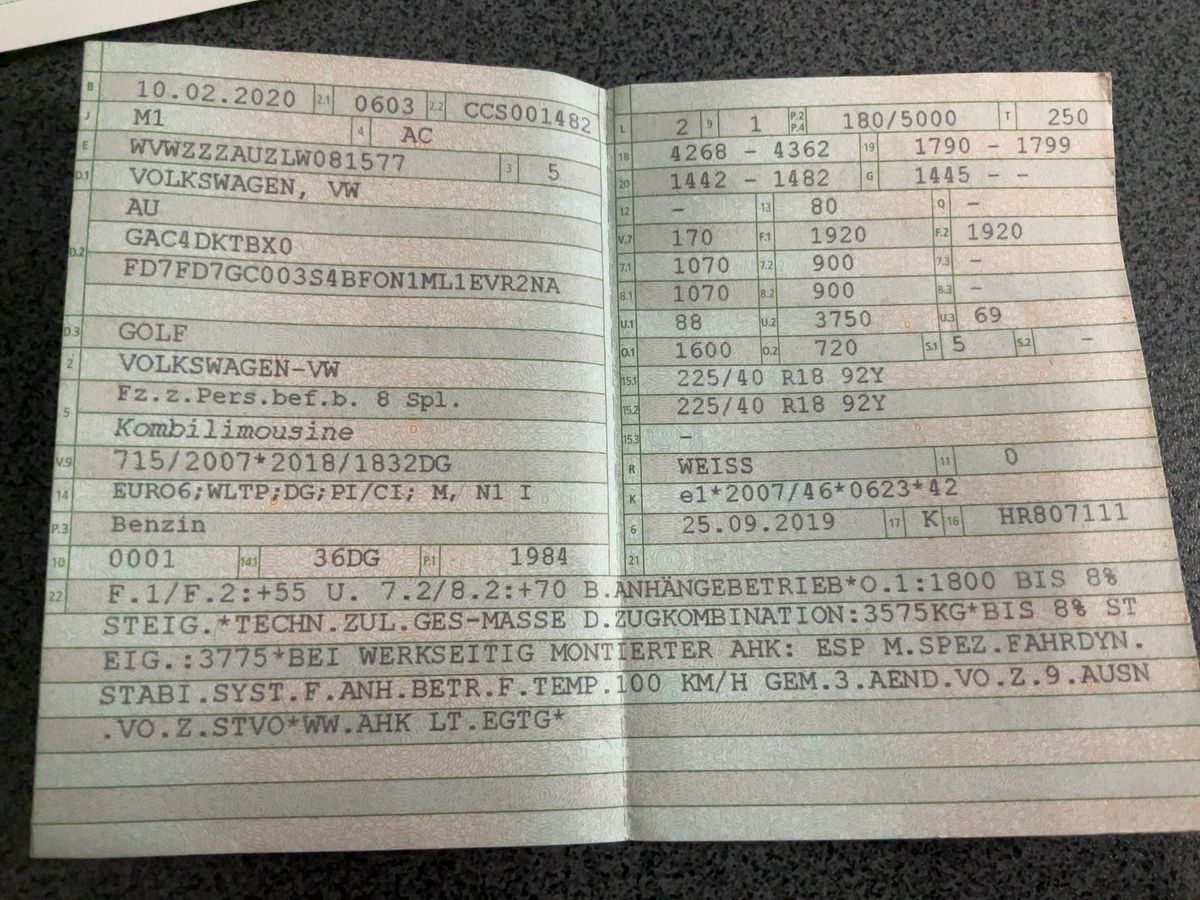 B 10.02.2020 2.1 0603 2.2 CCS001482
J M1 4 AC
E WVWZZZAUZLW081577 3 5
D.1 VOLKSWAGEN, VW
AU
D.2 GAC4DKTBX0
FD7FD7GC003S4BFON1ML1EVR2NA
D.3 GOLF
2 VOLKSWAGEN-VW
5 Fz.z.Pers.bef.b. 8 Spl.
Kombilimousine
V.9 715/2007*2018/1832DG
14 EURO6;WLTP;DG;PI/CI; M, N1 I
P.3 Benzin
10 0001 14.1 36DG P.1 1984
L 2 9 1 P.2 P.4 180/5000 T 250
18 4268 - 4362 19 1790 - 1799
20 1442 - 1482 G 1445 - -
12 - 13 80 Q -
V.7 170 F.1 1920 F.2 1920
7.1 1070 7.2 900 7.3 -
8.1 1070 8.2 900 8.3 -
U.1 88 U.2 3750 U.3 69
O.1 1600 O.2 720 S.1 5 S.2 -
15.1 225/40 R18 92Y
15.2 225/40 R18 92Y
15.3 -
R WEISS 11 0
K e1*2007/46*0623*42
6 25.09.2019 17 K 16 HR807111
21
22 F.1/F.2:+55 U. 7.2/8.2:+70 B.ANHÄNGEBETRIEB*O.1:1800 BIS 8%
STEIG.*TECHN.ZUL.GES-MASSE D.ZUGKOMBINATION:3575KG*BIS 8% ST
EIG.:3775*BEI WERKSEITIG MONTIERTER AHK: ESP M.SPEZ.FAHRDYN.
STABI.SYST.F.ANH.BETR.F.TEMP.100 KM/H GEM.3.AEND.VO.Z.9.AUSN
.VO.Z.STVO*WW.AHK LT.EGTG*